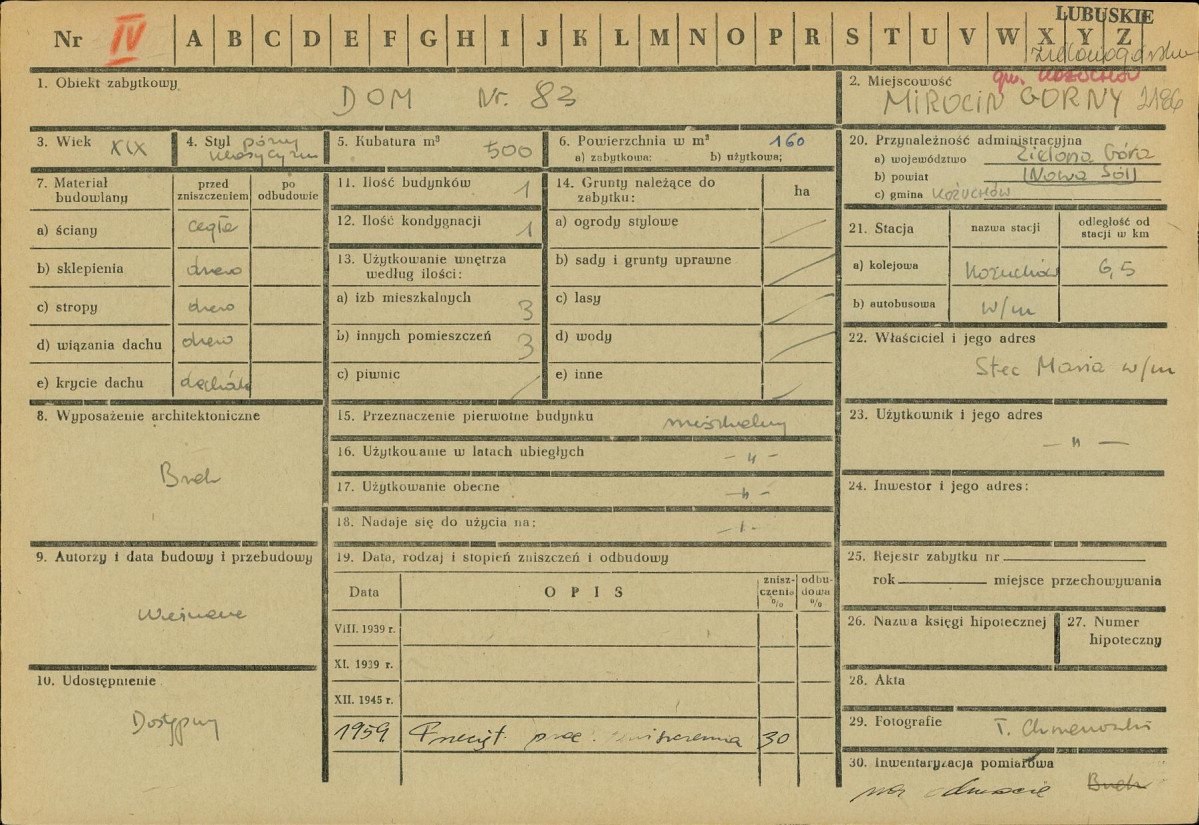 LUBUSKIE
Nr IV A B C D E F G H I J K L M N O P R S T U V W X Y Z
1. Obiekt zabytkowy
DOM Nr. 83
2. Miejscowość gm. KOŻUCHÓW
MIROCIN GÓRNY 2186
3. Wiek XIX
4. Styl późny klasycyzm
5. Kubatura m³ 500
6. Powierzchnia w m² 160
a) zabytkowa: b) użytkowa;
20. Przynależność administracyjna
a) województwo Zielona Góra
b) powiat (Nowa Sól)
c) gmina KOŻUCHÓW
7. Materiał budowlany
przed zniszczeniem
po odbudowie
a) ściany cegła
b) sklepienia drewo
c) stropy drewo
d) wiązania dachu drewo
e) krycie dachu
11. Ilość budynków 1
12. Ilość kondygnacji 1
13. Użytkowanie wnętrza
według ilości:
a) izb mieszkalnych 3
b) innych pomieszczeń 3
c) piwnic
14. Grunty należące do
zabytku:
ha
a) ogrody stylowe
b) sady i grunty uprawne
c) lasy
d) wody
e) inne
21. Stacja
nazwa stacji
odległość od
stacji w km
a) kolejowa Kożuchów 6,5
b) autobusowa w/m
22. Właściciel i jego adres
Stec Maria w/m
8. Wyposażenie architektoniczne
Brak
15. Przeznaczenie pierwotne budynku mieszkalny
16. Użytkowanie w latach ubiegłych - „ -
17. Użytkowanie obecne - „ -
18. Nadaje się do użycia na: - „ -
23. Użytkownik i jego adres
- „ -
24. Inwestor i jego adres:
9. Autorzy i data budowy i przebudowy
Nieznane
19. Data, rodzaj i stopień zniszczeń i odbudowy
Data
OPIS
znisz-
czenia
%
odbu-
dowa
%
VIII. 1939 r.
XI. 1939 r.
XII. 1945 r.
1959 Przecięt. proc. zniszczenia 30
25. Rejestr zabytku nr
rok miejsce przechowywania
26. Nazwa księgi hipotecznej
27. Numer
hipoteczny
28. Akta
10. Udostępnienie
Dostępny
29. Fotografie T.
30. Inwentaryzacja pomiarowa
na odwrocie Brak